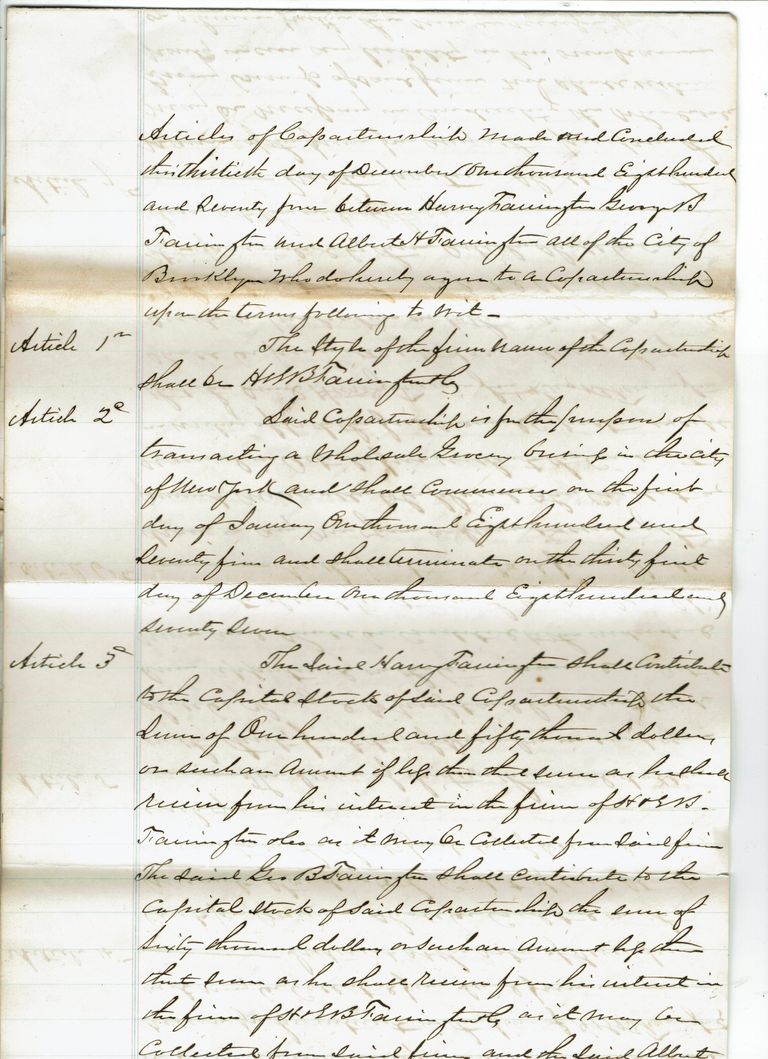 Articles of Copartnership Made and Concluded
this thirtieth day of December One thousand Eight hundred
and Seventy four between Harvey Farrington George B
Farrington and Albert H Farrington all of the City of
Brooklyn Who do hereby agree to a Copartnership
upon the terms following to wit -
Article 1st The Style of the firm name of the Copartnership
shall be H & G B Farrington &Co
Article 2d Said Copartnership is for the purpose of
transacting a Wholesale Grocery business in the city
of New York and shall Commence on the first
day of January One thousand Eight hundred and
Seventy five and shall terminate on the thirty first
day of December One thousand Eight hundred and
seventy seven
Article 3d The Said Harvey Farrington shall Contribute
to the Capital Stock of Said Copartnership the
Sum of One hundred and fifty thousand dollars
or such an Amount if less than that sum as he shall
receive from his interest in the firm of H & G B
Farrington &Co as it may be Collected from Said firm
The Said Geo B Farrington shall contribute to the
Capital Stock of Said Copartnership the sum of
Sixty thousand dollars or such an Amount less than
that sum as he shall receive from his interest in
the firm of H & G B Farrington &Co as it may be
Collected from Said firm and the Said Albert